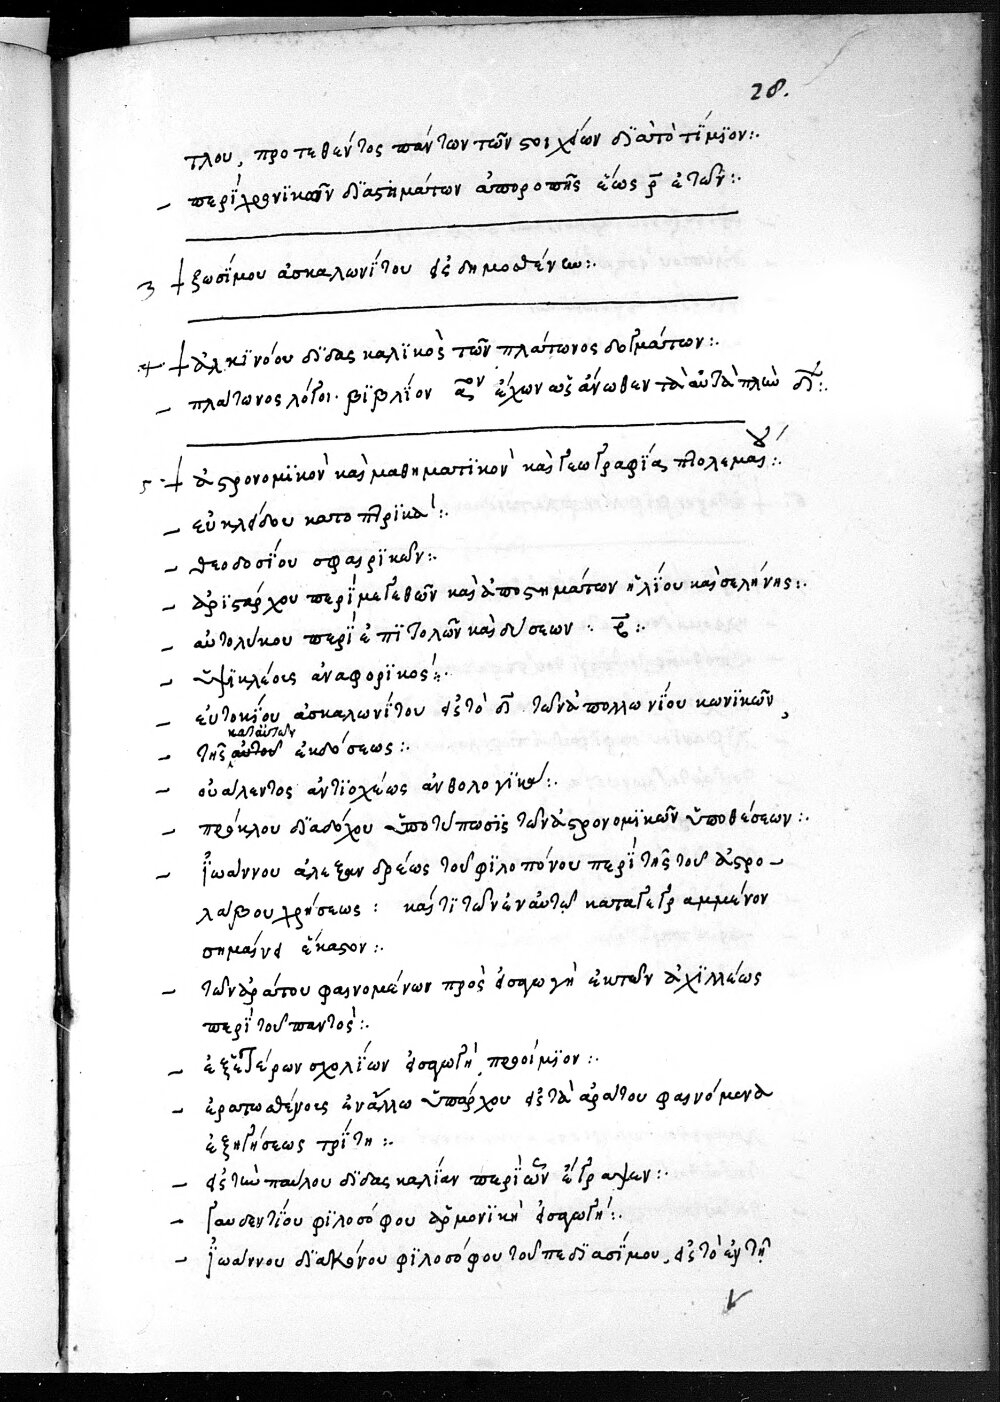 28.
τλου, προτεθέντος πάντων τῶν στοιχείων διὰ τὸ τίμϊον:.
– περὶ χρονϊκῶν διαστημάτων ἀπὸ ροπῆς ἕως ρ̅ ἐτῶν:.
3 + ζωσίμου ἀσκαλωνίτου εἰς δημοσθένην:.
4 + ἀλκινόου διδασκαλικὸς τῶν πλάτωνος δογμάτων:.
– πλάτωνος λόγοι. βιβλίον α̅ον ἔχον ὡς ἄνωθεν τὰ αὐτὰ πλὴν
5 + ἀστρονομικὸν καὶ μαθηματικὸν καὶ γεωγραφίας πτολεμαίου:.
– εὐκλείδου κατοπτρικά:.
– θεοδοσίου σφαιρικῶν:.
– ἀριστάρχου περὶ μεγεθῶν καὶ ἀποστημάτων ἡλίου καὶ σελήνης:.
– αὐτολύκου περὶ ἐπιτολῶν καὶ δύσεων. β̅:.
– ὑψικλέους ἀναφορικός:.
– εὐτοκίου ἀσκαλωνίτου εἰς τὸ τῶν ἀπολλωνίου κωνικῶν,
κατ αὐτὸν
– τῆς αὐτοῦ ἐκδόσεως:.
– οὐάλεντος ἀντιοχέως ἀνθολογικῶν:.
– πρόκλου διαδόχου ὑποτύπωσις τῶν ἀστρονομικῶν ὑποθέσεων:.
– ἰωάννου ἀλεξανδρέως τοῦ φιλοπόνου περὶ τῆς τοῦ ἀστρο–
λάβου χρήσεως: καὶ τί τῶν ἐν αὐτῷ καταγεγραμμένον
σημαίνει ἕκαστον:.
– τῶν ἀράτου φαινομένων πρὸς εἰσαγωγὴν ἐκ τῶν ἀχιλλέως
περὶ τοῦ παντός:.
– ἐξ ἑτέρων σχολίων εἰσαγωγὴ προοίμιον:.
– ἐρατοσθένους ἐν ἄλλω ἱππάρχου εἰς τὰ ἀράτου φαινόμενα
ἐξηγήσεως τρίτη:.
– εἰς τὴν παύλου διδασκαλίαν περὶ ὧν ἔγραψεν:.
– γαυδεντίου φιλοσόφου ἁρμονικὴ εἰσαγωγή:.
– ἰωάννου διακόνου φιλοσόφου τοῦ πεδιασίμου, εἰς τὸ ἐν τῆ